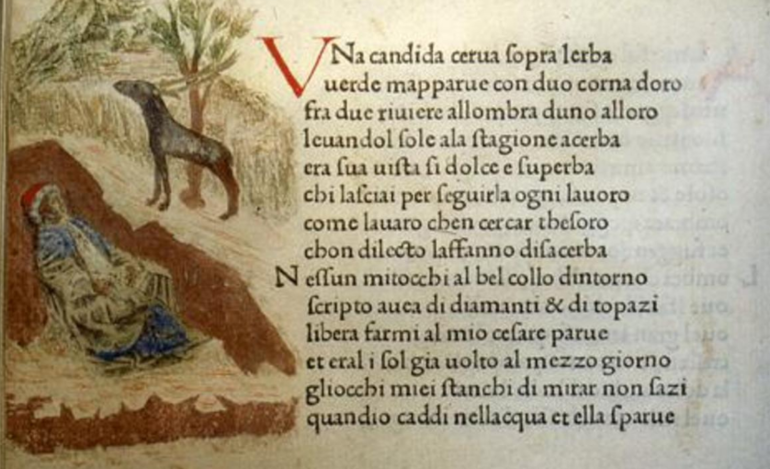 VNa candida cerua sopra lerba
uerde mapparue con duo corna doro
fra due riuiere allombra duno alloro
leuandol sole ala stagione acerba
era sua uista si dolce e superba
chi lasciai per seguirla ogni lauoro
come lauaro chen cercar thesoro
chon dilecto laffanno disacerba
Nessun mi tocchi al bel collo dintorno
scripto auea di diamanti & di topazi
libera farmi al mio cesare parue
et eral i sol gia uolto al mezzo giorno
gliocchi miei stanchi di mirar non sazi
quandio caddi nellacqua et ella sparue